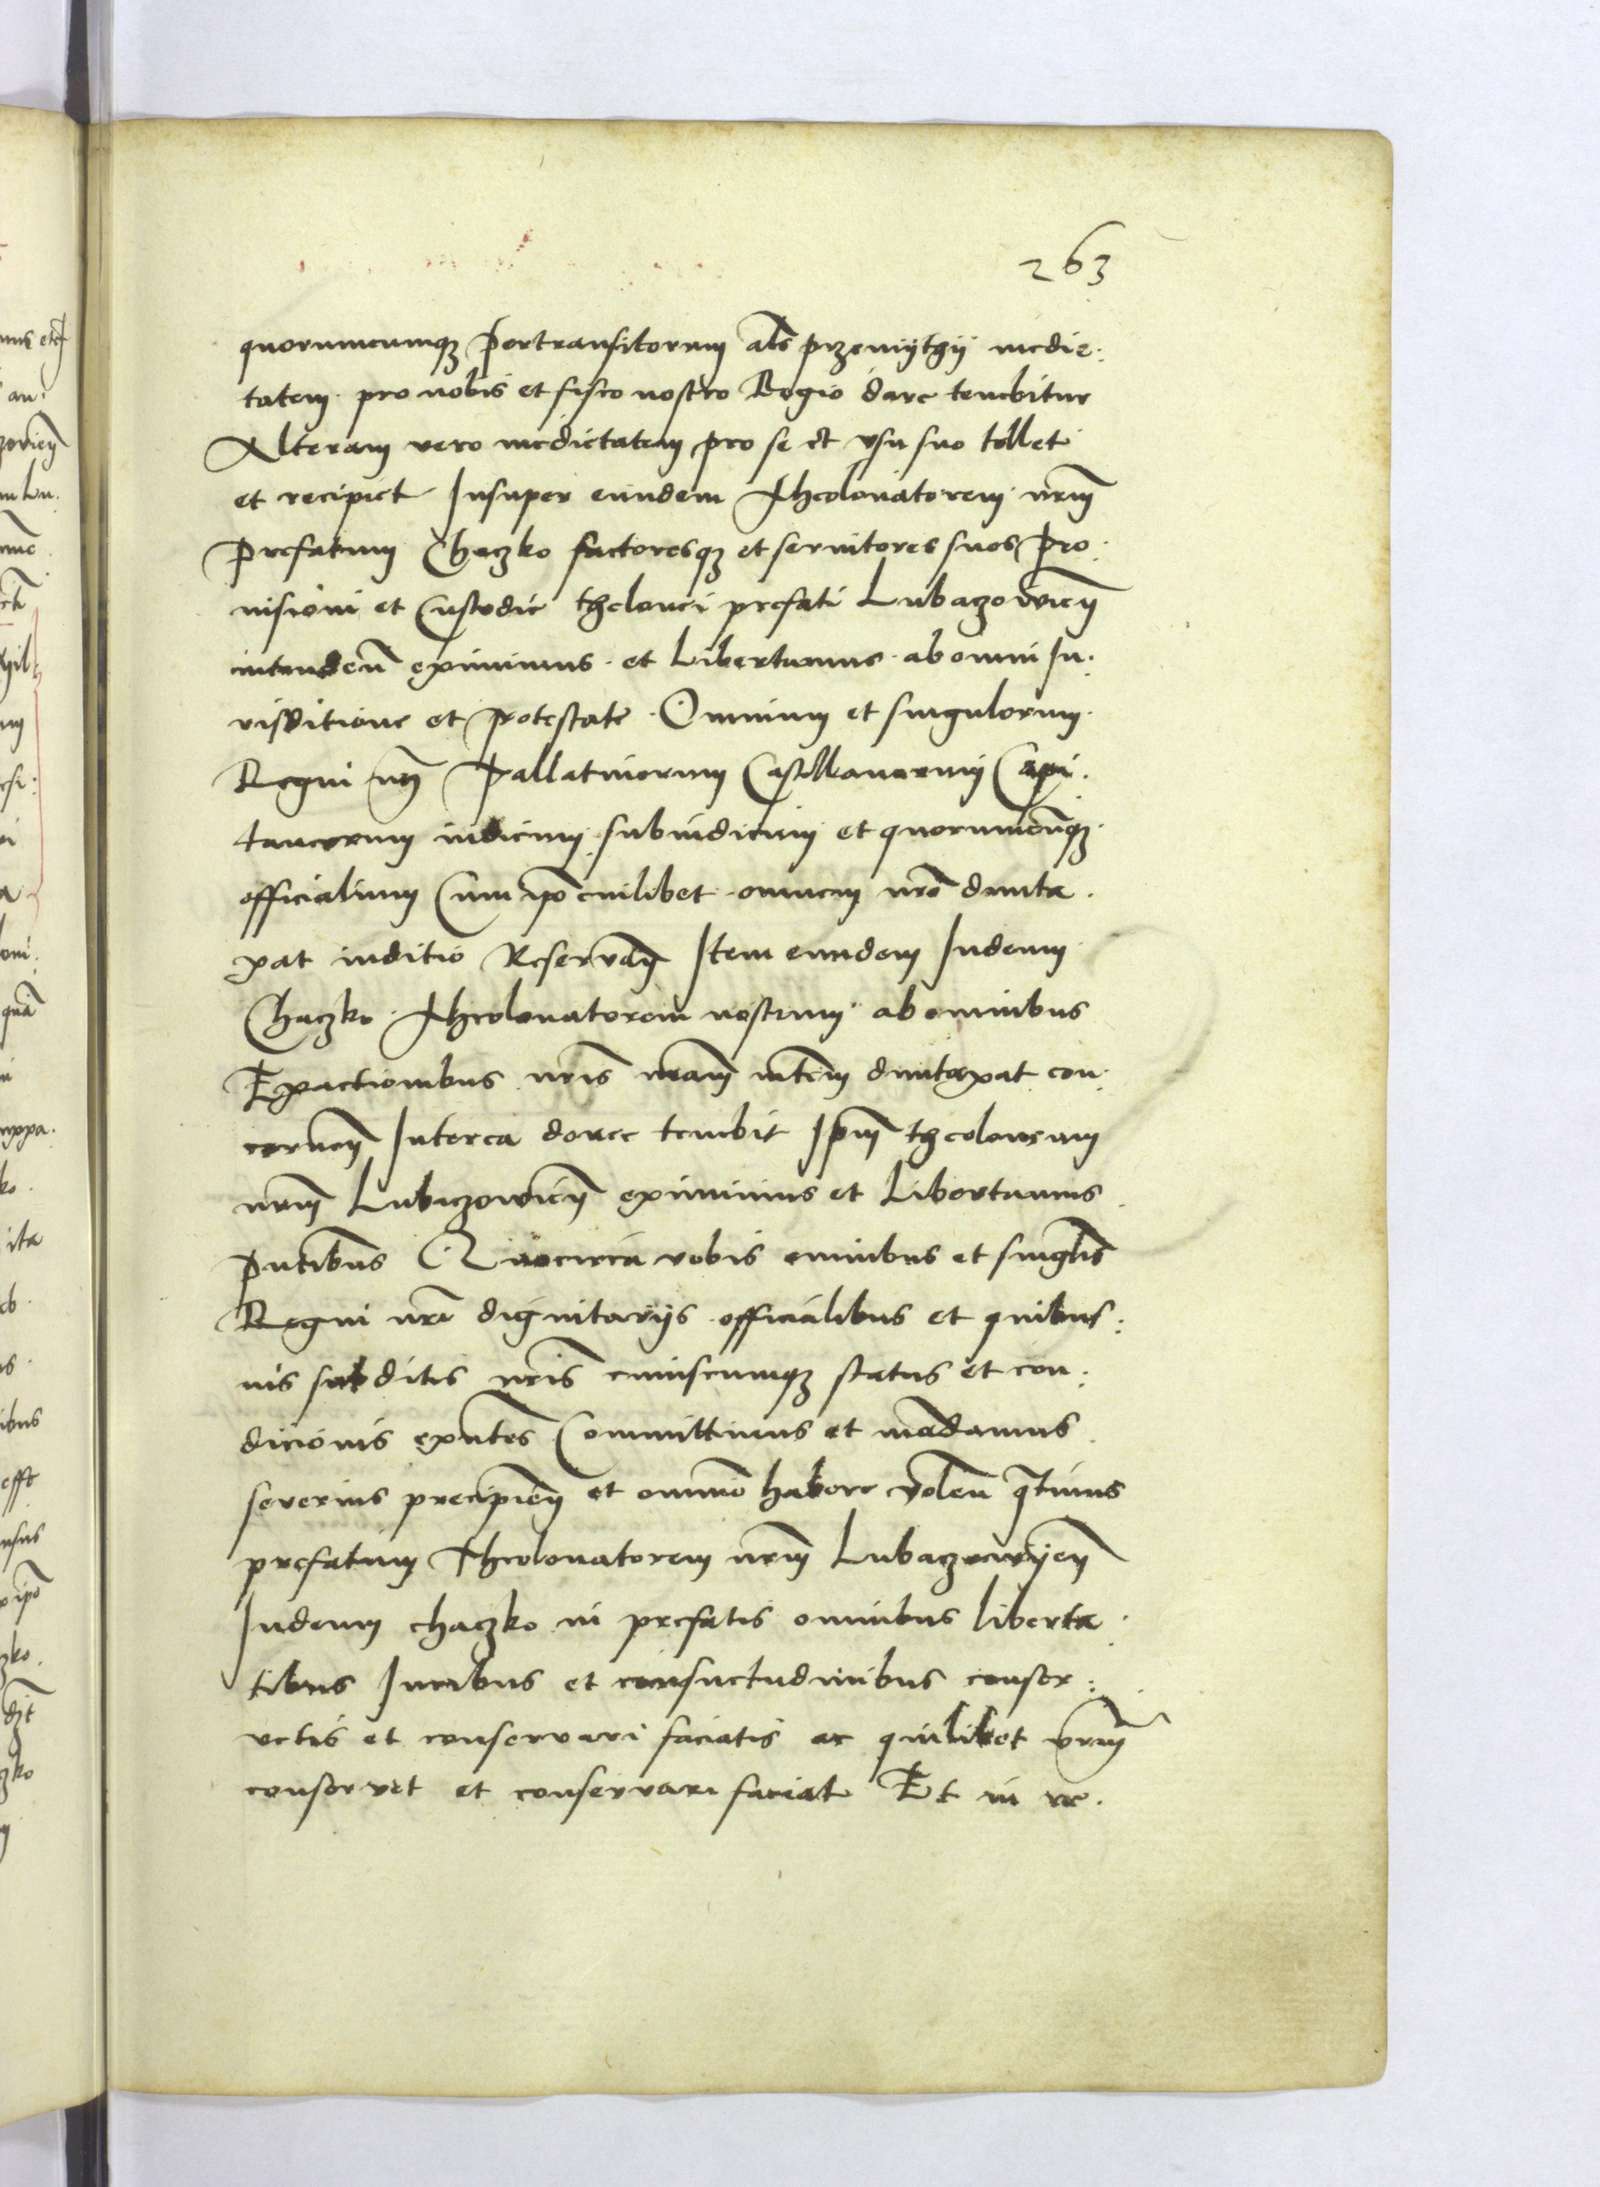 263
quorumcumqꝫ Pertransitorum al̃s przemijthy medie:
tatem pro nobis et fisco nostro Regio dare tenebitur
Alteram vero medietatem pro se et vsu suo tollet
et recipiet Insuper eundem Theolonatorem nr̃m
Prefatum Chaczko factoresqꝫ et seruitores suos Pro
uisioni et Custodie thelonei prefati Lubaczowieñ
intendeñ eximimus et Libertamus ab omni Iu.
risditione et Potestate Omnium et singulorum
Regni nr̃i Pallatinorum Castellanorum Capi.
taneorum iudicum subiudicum et quorumcũqꝫ
officialium Cum ip̃o cuilibet omnem nr̃o dunta.
xat iuditio Reseruañ Item eundem Iudeum
Chaczko Theolonatorem nostrum ab omnibus
Exactionibus nr̃is duntaxat con.
cerneñ Interea donec tenebit Ip̃m theoloneum
nr̃m Lubaczowieñ eximimus et Libertamus
Pñtibus Quocirca vobis omnibus et singl̃is
Regni nr̃i dignitarijs officialibus et quibus:
uis subditis nr̃is cuiuscumqꝫ status et con:
dicionis exñtes Committimus et mãdamus
seuerius precipieñ et omnĩo habere voleñ q̃tinus
prefatum Theolonatorem nr̃m Lubaczowijeñ
Iudeum chaczko in prefatis omnibus liberta.
tibus Iuribus et consuetudinibus conser:
uetis et conseruari faciatis ac quilibet vr̃m
conseruet et conseruari faciat Et in ve.